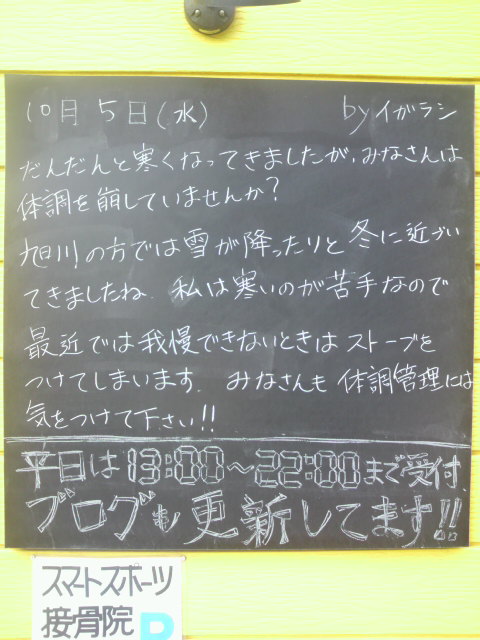 10月5日(水) byイガラシ
だんだんと寒くなってきましたが、みなさんは
体調を崩していませんか?
旭川の方では雪が降ったりと冬に近づい
てきましたね. 私は寒いのが苦手なので
最近では我慢できないときはストーブを
つけてしまいます. みなさんも体調管理には
気をつけて下さい!!
平日は13:00~22:00まで受付.
ブログも更新してます!!
スマートスポーツ
接骨院 P